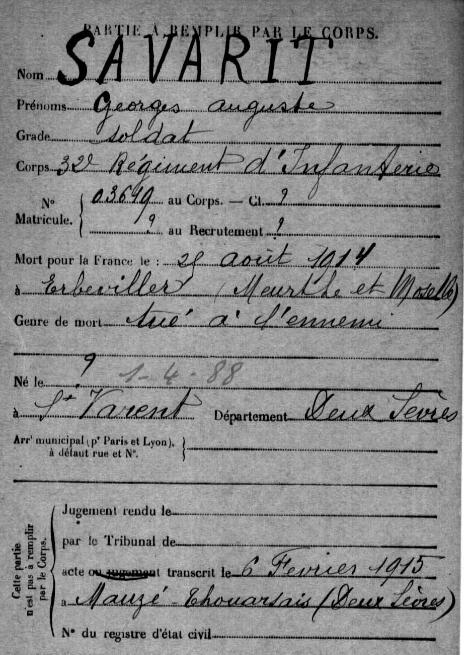 PARTIE À REMPLIR PAR LE CORPS.
Nom SAVARIT
Prénoms Georges auguste
Grade soldat
Corps 32e Régiment d'Infanterie
N° Matricule. { 03649 au Corps. — Cl. ?
? au Recrutement ?
Mort pour la France le : 25 août 1914
à Erbeviller (Meurthe et Moselle)
Genre de mort tué à l'ennemi
Né le ? 1-4-88
à St Varent Département Deux Sèvres
Arrt municipal (pr Paris et Lyon), à défaut rue et N°. }
Cette partie n'est pas à remplir par le Corps. {
Jugement rendu le
par le Tribunal de
acte ou jugement transcrit le 6 Fevrier 1915
à Mauzé-Thouarsais (Deux Sèvres)
N° du registre d'état civil